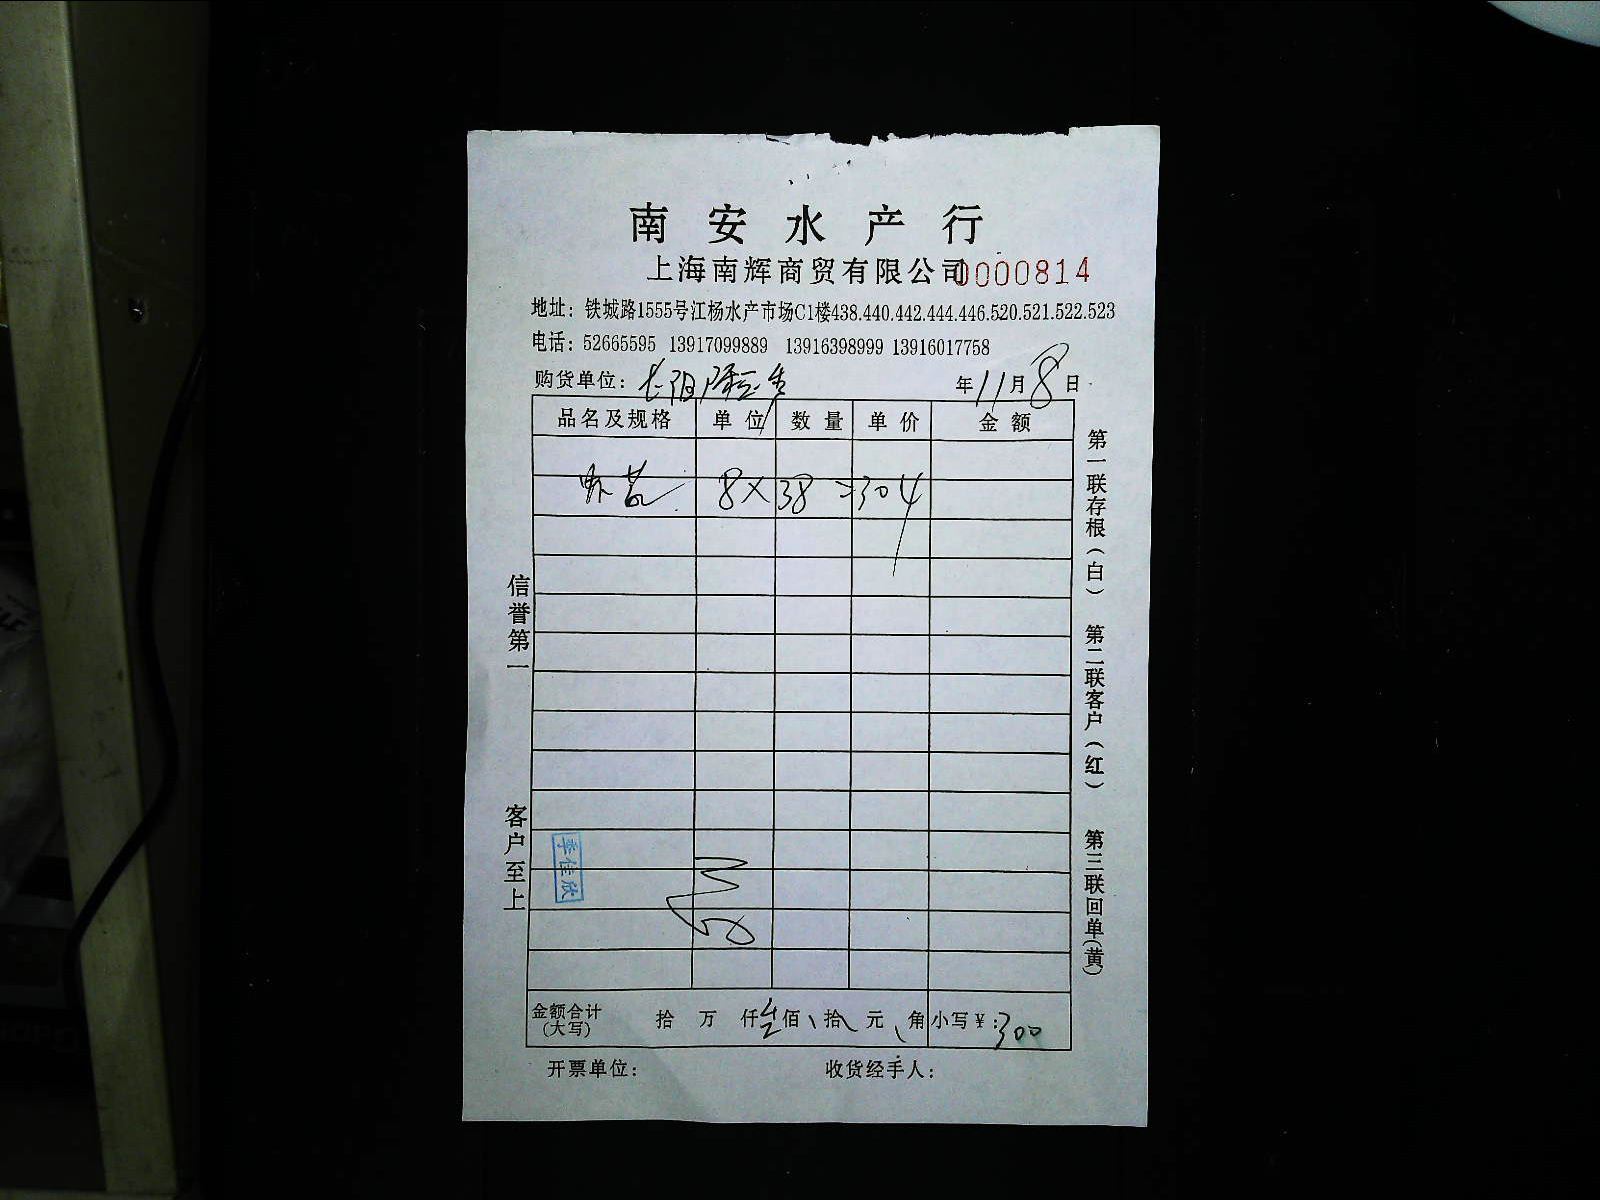 南安水产行
上海南辉商贸有限公司 0000814
地址：铁城路1555号江杨水产市场C1楼438.440.442.444.446.520.521.522.523
电话：52665595 13917099889 13916398999 13916017758
购货单位：
年11月8日
品名及规格 单位 数量 单价 金额
8×38=304
信誉第一
客户至上
第一联存根（白）
第二联客户（红）
第三联回单（黄）
季佳欣
金额合计
(大写)
拾 万 仟 佰 拾 元 角 小写￥：300
开票单位： 收货经手人：